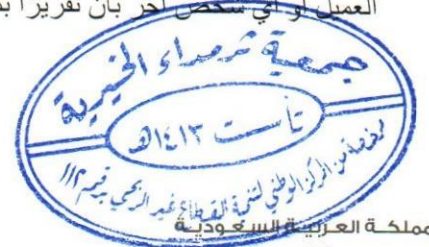 العميل أو أي شخص آخر بأن تقريرا
جمعية ثرمداء الخيرية
تأسست ١٤١٣هـ
مرخصة من المركز الوطني لتنمية القطاع غير الربحي برقم ١١٢
المملكة العربية السعودية